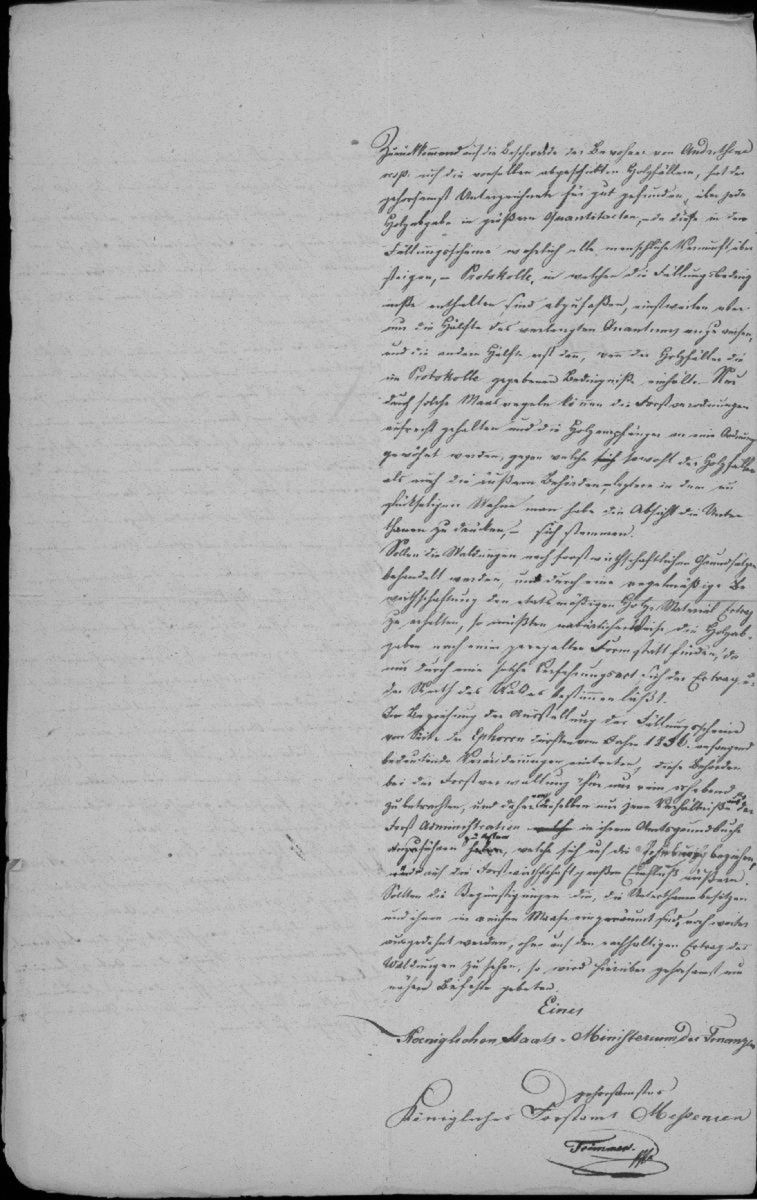 Zurückkommend auf die Beschwerde der Bewohner von
auf die von selben abgeschickten Holzfällern, hat der
gehorsamst Unterzeichnete für gut gefunden, über jede
Holzabgabe in größern Quantitaeten, da diese in dem
Fällungsscheine wahrlich alle menschliche Vernunft über
steigen, – Protokolle, in welchen die Fällungsbeding
niße enthalten sind abzufaßen, einstweilen aber
nur die Hälfte des verlangten Quantums anzuweisen,
und die andere Hälfte erst dann, wenn der Holzfäller die
im Protokolle gegebenen Bedingniße einhält. – Nur
durch solche Maasregeln können die Forstverordnungen
aufrecht gehalten und die Holzempfänger an eine Ordnung
gewöhnt werden, gegen welche sich sowohl der Holzfäller
als auch die äußern Behörden, leztere in dem un
glückseligen Wahne man habe die Absicht die Unter
thanen zu drücken, – sich stemmen.
Sollen die Waldungen nach forstwirthschaftlichen Grundsätzen
behandelt werden, und durch eine regelmäßige Be
wirthschaftung den etatsmäßigen Holz-Material Ertrag
zu erhalten, so müßten natürlicher Weise die Holzab-
gaben nach einer geregelten Form statt finden, da
nur durch eine solche Verfahrungsart sich der Ertrag u.
der Werth des Waldes bestimmen läßt.
In Beziehung der Ausstellung der Fällungsscheine
von Seite der Ephoren dürften vom Jahre 1836 anfangend
bedeutende Veränderungen eintreten, diese Behörden
bei der Forstverwaltung für nur rein erhebend
zu betrachten, und daher dieselben nur zum Verhältniß der
Forst Administration in ihrem Amtsgrundbuche
anzuführen, welche sich auf die beziehen,
und auf die Forstwirthschaft großen Einfluß äußern.
Sollten die Begünstigungen die, die Unterthanen besitzen
und ihnen in reichem Maaße eingeräumt sind, noch weiter
ausgedehnt werden, ohne auf den nachhaltigen Ertrag der
Waldungen zu sehen, so wird hierüber gehorsamst um
nähere Befehle gebeten.
Eines
Koeniglichen Staats-Ministerium der Finanzen
gehorsamstes
Königliches Forstamt Meßenien